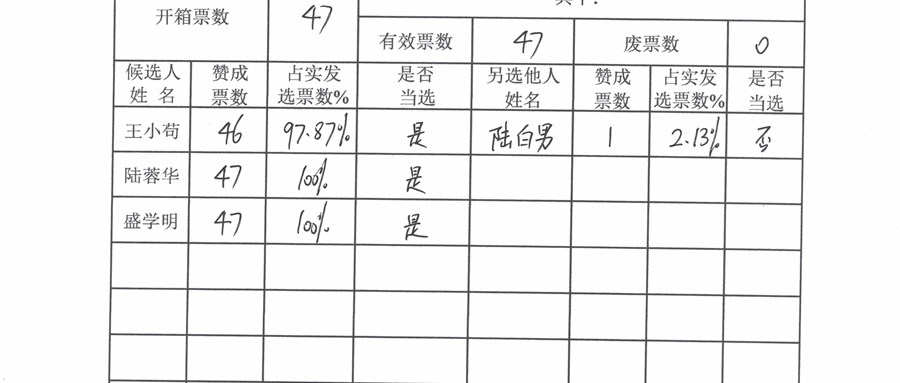 其中：
开箱票数 47
有效票数 47 废票数 0
候选人姓名 赞成票数 占实发选票数% 是否当选 另选他人姓名 赞成票数 占实发选票数% 是否当选
王小苟 46 97.87% 是 陆白男 1 2.13% 否
陆蓉华 47 100% 是
盛学明 47 100% 是